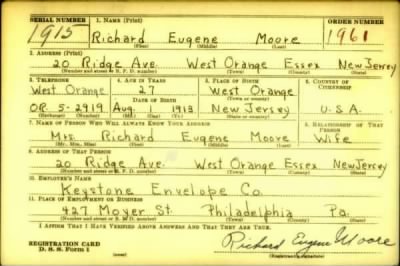 SERIAL NUMBER 1. NAME (Print) ORDER NUMBER
1915 Richard Eugene Moore 1961
(First) (Middle) (Last)
2. ADDRESS (Print)
20 Ridge Ave. West Orange Essex New Jersey
(Number and street or R. F. D. number) (Town) (County) (State)
3. TELEPHONE 4. AGE IN YEARS 5. PLACE OF BIRTH 6. COUNTRY OF CITIZENSHIP
West Orange 27 West Orange
DATE OF BIRTH (Town or county)
OR. 5-2919 Aug. 1 1913 New Jersey U.S.A.
(Exchange) (Number) (Mo.) (Day) (Yr.) (State or country)
7. NAME OF PERSON WHO WILL ALWAYS KNOW YOUR ADDRESS 8. RELATIONSHIP OF THAT PERSON
Mrs. Richard Eugene Moore Wife
(Mr., Mrs., Miss) (First) (Middle) (Last)
9. ADDRESS OF THAT PERSON
20 Ridge Ave. West Orange Essex New Jersey
(Number and street or R. F. D. number) (Town) (County) (State)
10. EMPLOYER'S NAME
Keystone Envelope Co.
11. PLACE OF EMPLOYMENT OR BUSINESS
427 Moyer St. Philadelphia Pa.
(Number and street or R. F. D. number) (Town) (County) (State)
I AFFIRM THAT I HAVE VERIFIED ABOVE ANSWERS AND THAT THEY ARE TRUE.
REGISTRATION CARD
D. S. S. Form 1
Richard Eugene Moore
(Registrant's signature)